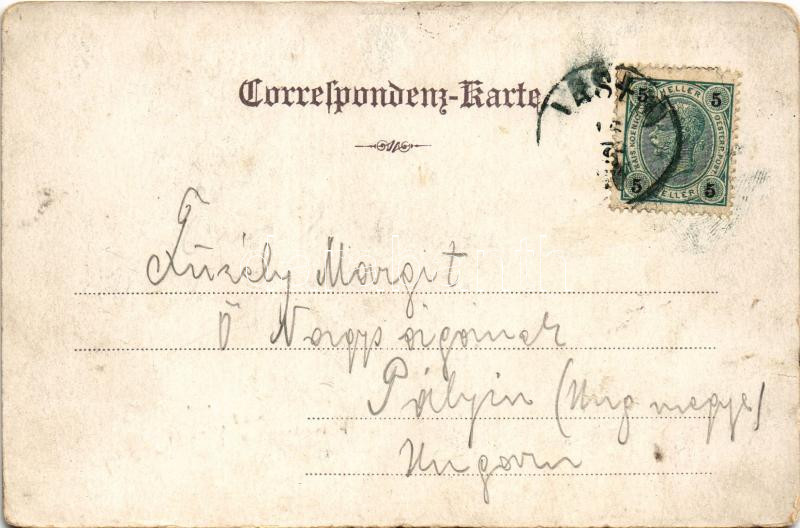 Correspondenz-Karte
5 HELLER 5
KAIS. KOENIGL. OESTERR. POST
5 HELLER 5
Füzély Margit
Ő Nagyságának
Pályin (Ung megye)
Ungarn